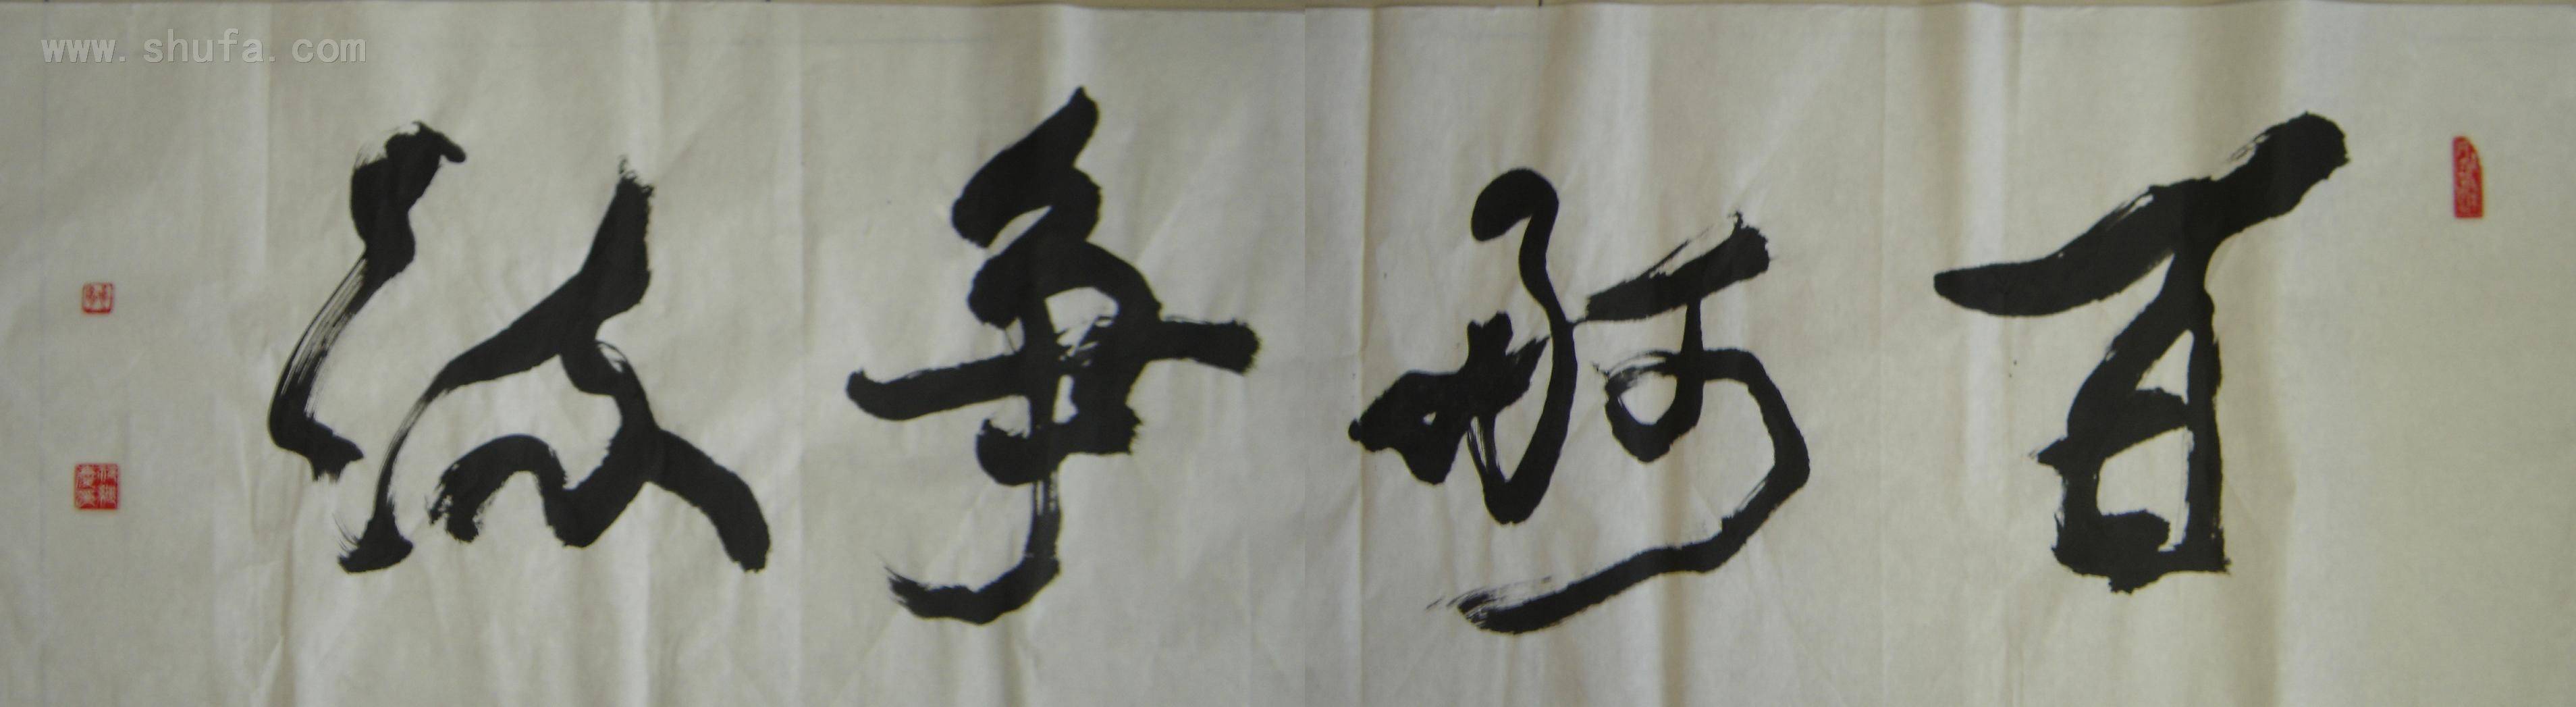 百舸争流
www.shufa.com